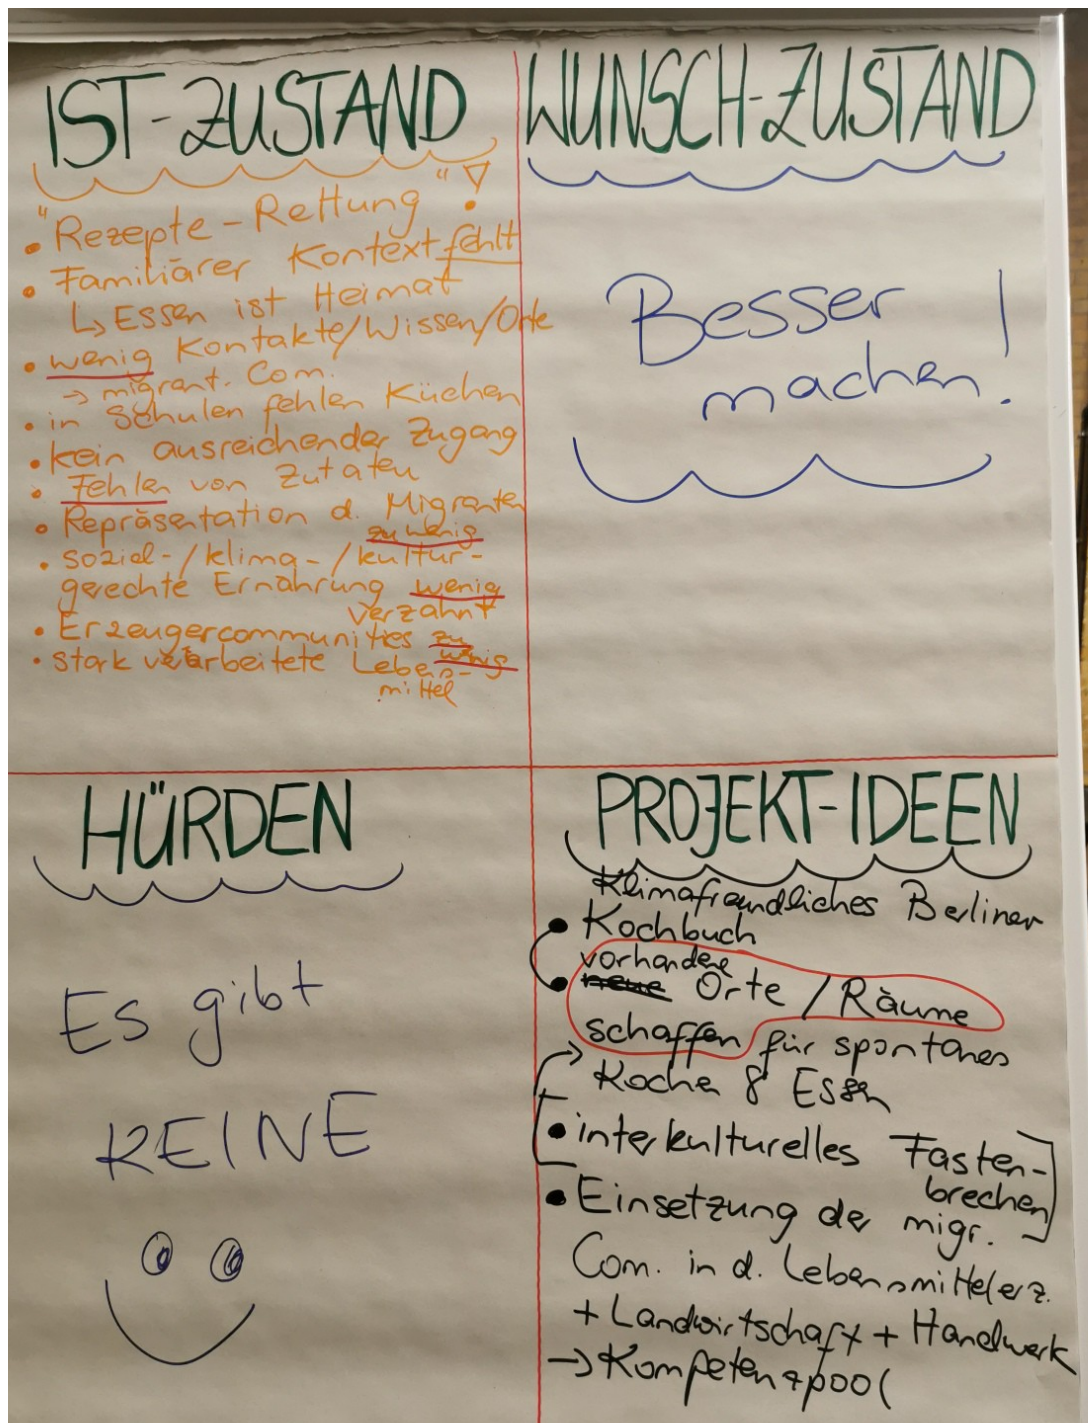 IST-ZUSTAND
"Rezepte-Rettung" !
• Familiärer Kontext fehlt
↳ Essen ist Heimat
• wenig Kontakte/Wissen/Orte
→ migrant. Com.
• in Schulen fehlen Küchen
• kein ausreichender Zugang
• Fehlen von Zutaten
• Repräsentation d. Migranten
zu wenig
• sozial-/klima-/kultur-
gerechte Ernährung wenig
verzahnt
• Erzeugercommunities zu
wenig
• stark verarbeitete Lebens-
mittel
WUNSCH-ZUSTAND
Besser
machen!
HÜRDEN
Es gibt
KEINE
PROJEKT-IDEEN
Klimafreundliches Berliner
• Kochbuch
vorhandene
• neue Orte / Räume
schaffen für spontanes
Kochen & Essen
• interkulturelles Fasten-
brechen
• Einsetzung der migr.
Com. in d. Lebensmittelerz.
+ Landwirtschaft + Handwerk
→ Kompetenzpool